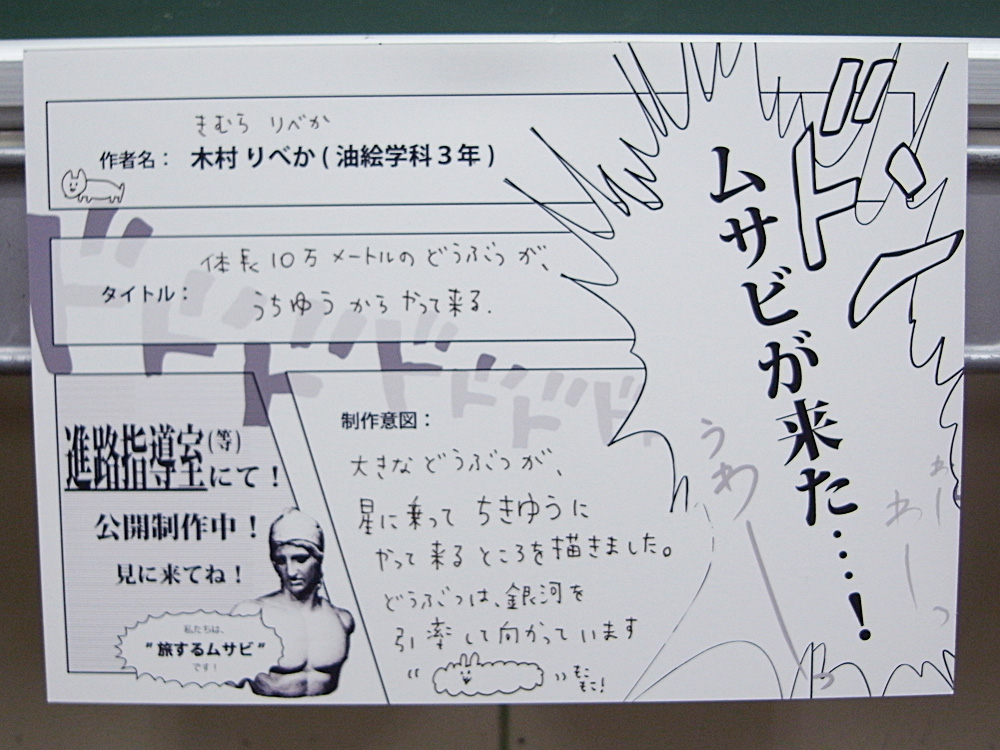 きむら りべか
作者名： 木村 りべか ( 油絵学科３年 )
体長10万メートルの どうぶつ が、
タイトル：
うちゆう から やって来る.
制作意図：
大きな どうぶつ が、
星に乗って ちきゆう に
やって来る ところを描きました。
どうぶつは、銀河を
引率して向かっています
もこもこ!
進路指導室(等)
にて！
公開制作中！
見に来てね！
私たちは、
“旅するムサビ”
です！
ムサビが来た…！
ドドーン
ドドドドドドド
うわーっ
わーっ